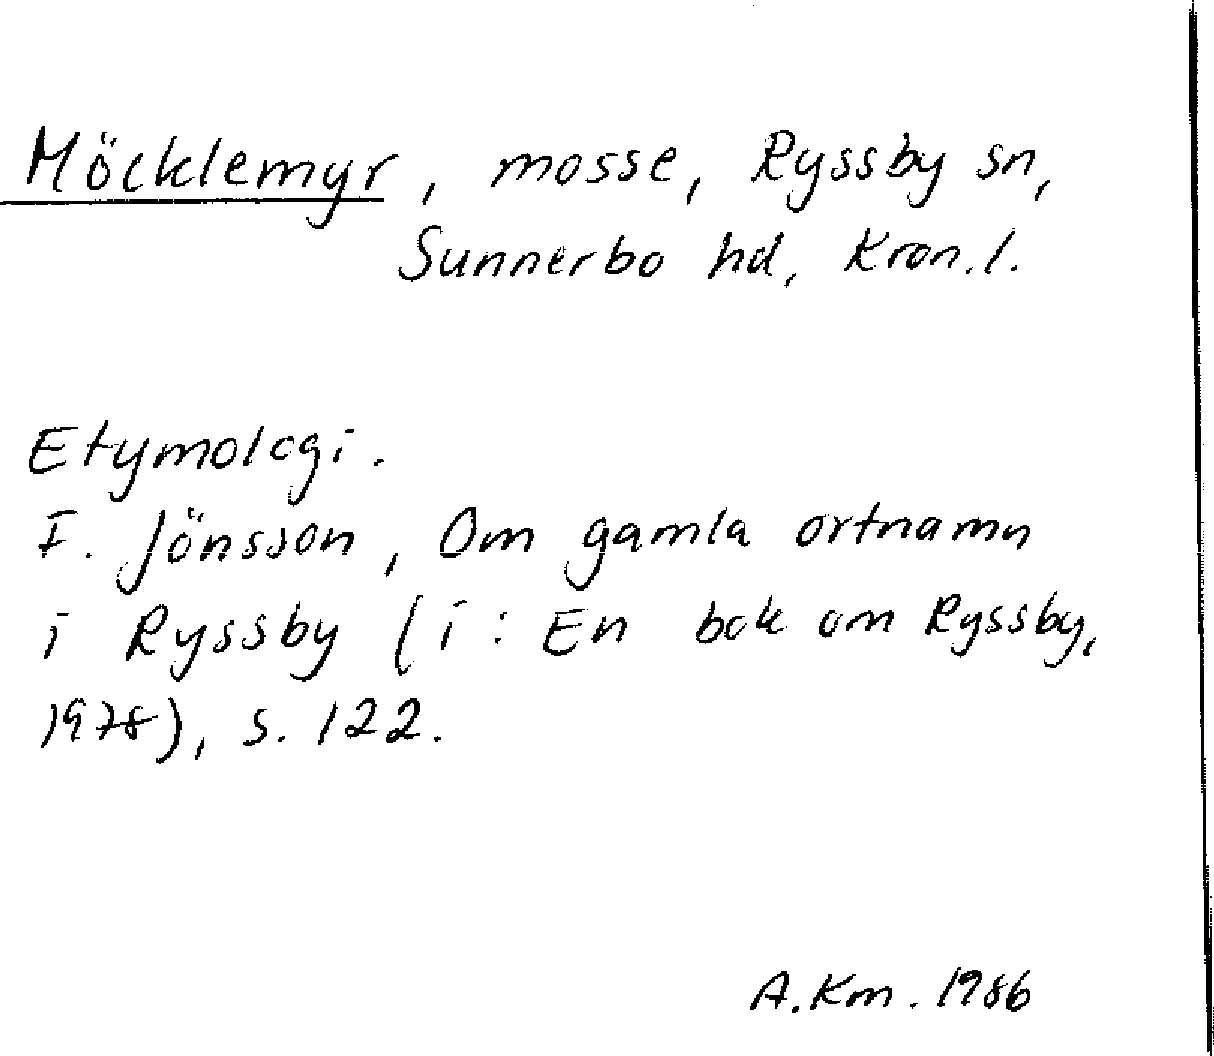 Möcklemyr, mosse, Ryssby sn,
Sunnerbo hd, Kron.l.
Etymologi.
F. Jönsson, Om gamla ortnamn
i Ryssby (i: En bok om Ryssby,
1978), s. 122.
A.Km. 1986